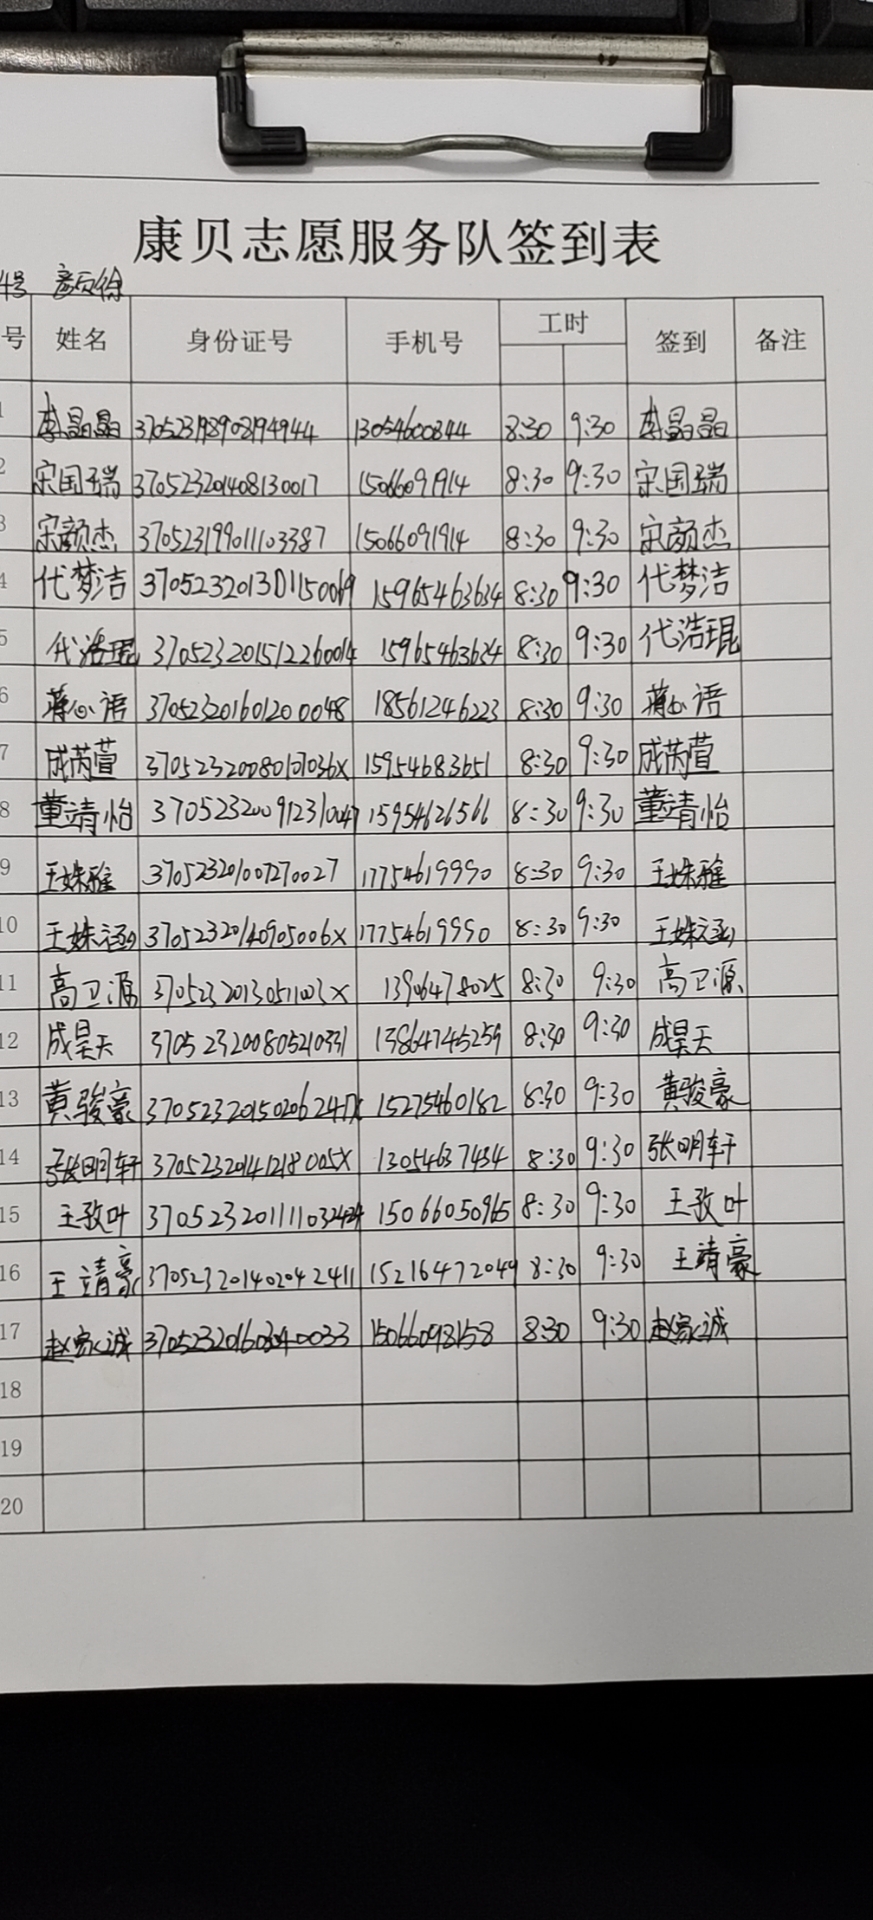 康贝志愿服务队签到表
号 姓名 身份证号 手机号 工时 签到 备注
1 李晶晶 370523198908194944 13054600844 8:30 9:30 李晶晶
2 宋国瑞 370523201408130017 15066091914 8:30 9:30 宋国瑞
3 宋颜杰 370523199011103387 15066091914 8:30 9:30 宋颜杰
4 代梦洁 370523201301150069 15965463634 8:30 9:30 代梦洁
5 代浩琨 370523201512260014 15965463634 8:30 9:30 代浩琨
6 蒋心语 370523201601200048 18561246223 8:30 9:30 蒋心语
7 成芮萱 37052320080101036X 15954683651 8:30 9:30 成芮萱
8 董靖怡 370523200912310047 15954626566 8:30 9:30 董靖怡
9 王姝雅 370523201007270027 17754619990 8:30 9:30 王姝雅
10 王姝涵 37052320140905006X 17754619990 8:30 9:30 王姝涵
11 高卫源 13906478025 8:30 9:30 高卫源
12 成昊天 370523200805210331 13864745259 8:30 9:30 成昊天
13 黄骏豪 15275460182 8:30 9:30 黄骏豪
14 张明轩 37052320141218005X 13054637434 8:30 9:30 张明轩
15 王孜叶 15066050965 8:30 9:30 王孜叶
16 王靖豪 370523201402042411 15216472049 8:30 9:30 王靖豪
17 赵家诚 15066098158 8:30 9:30 赵家诚
18
19
20